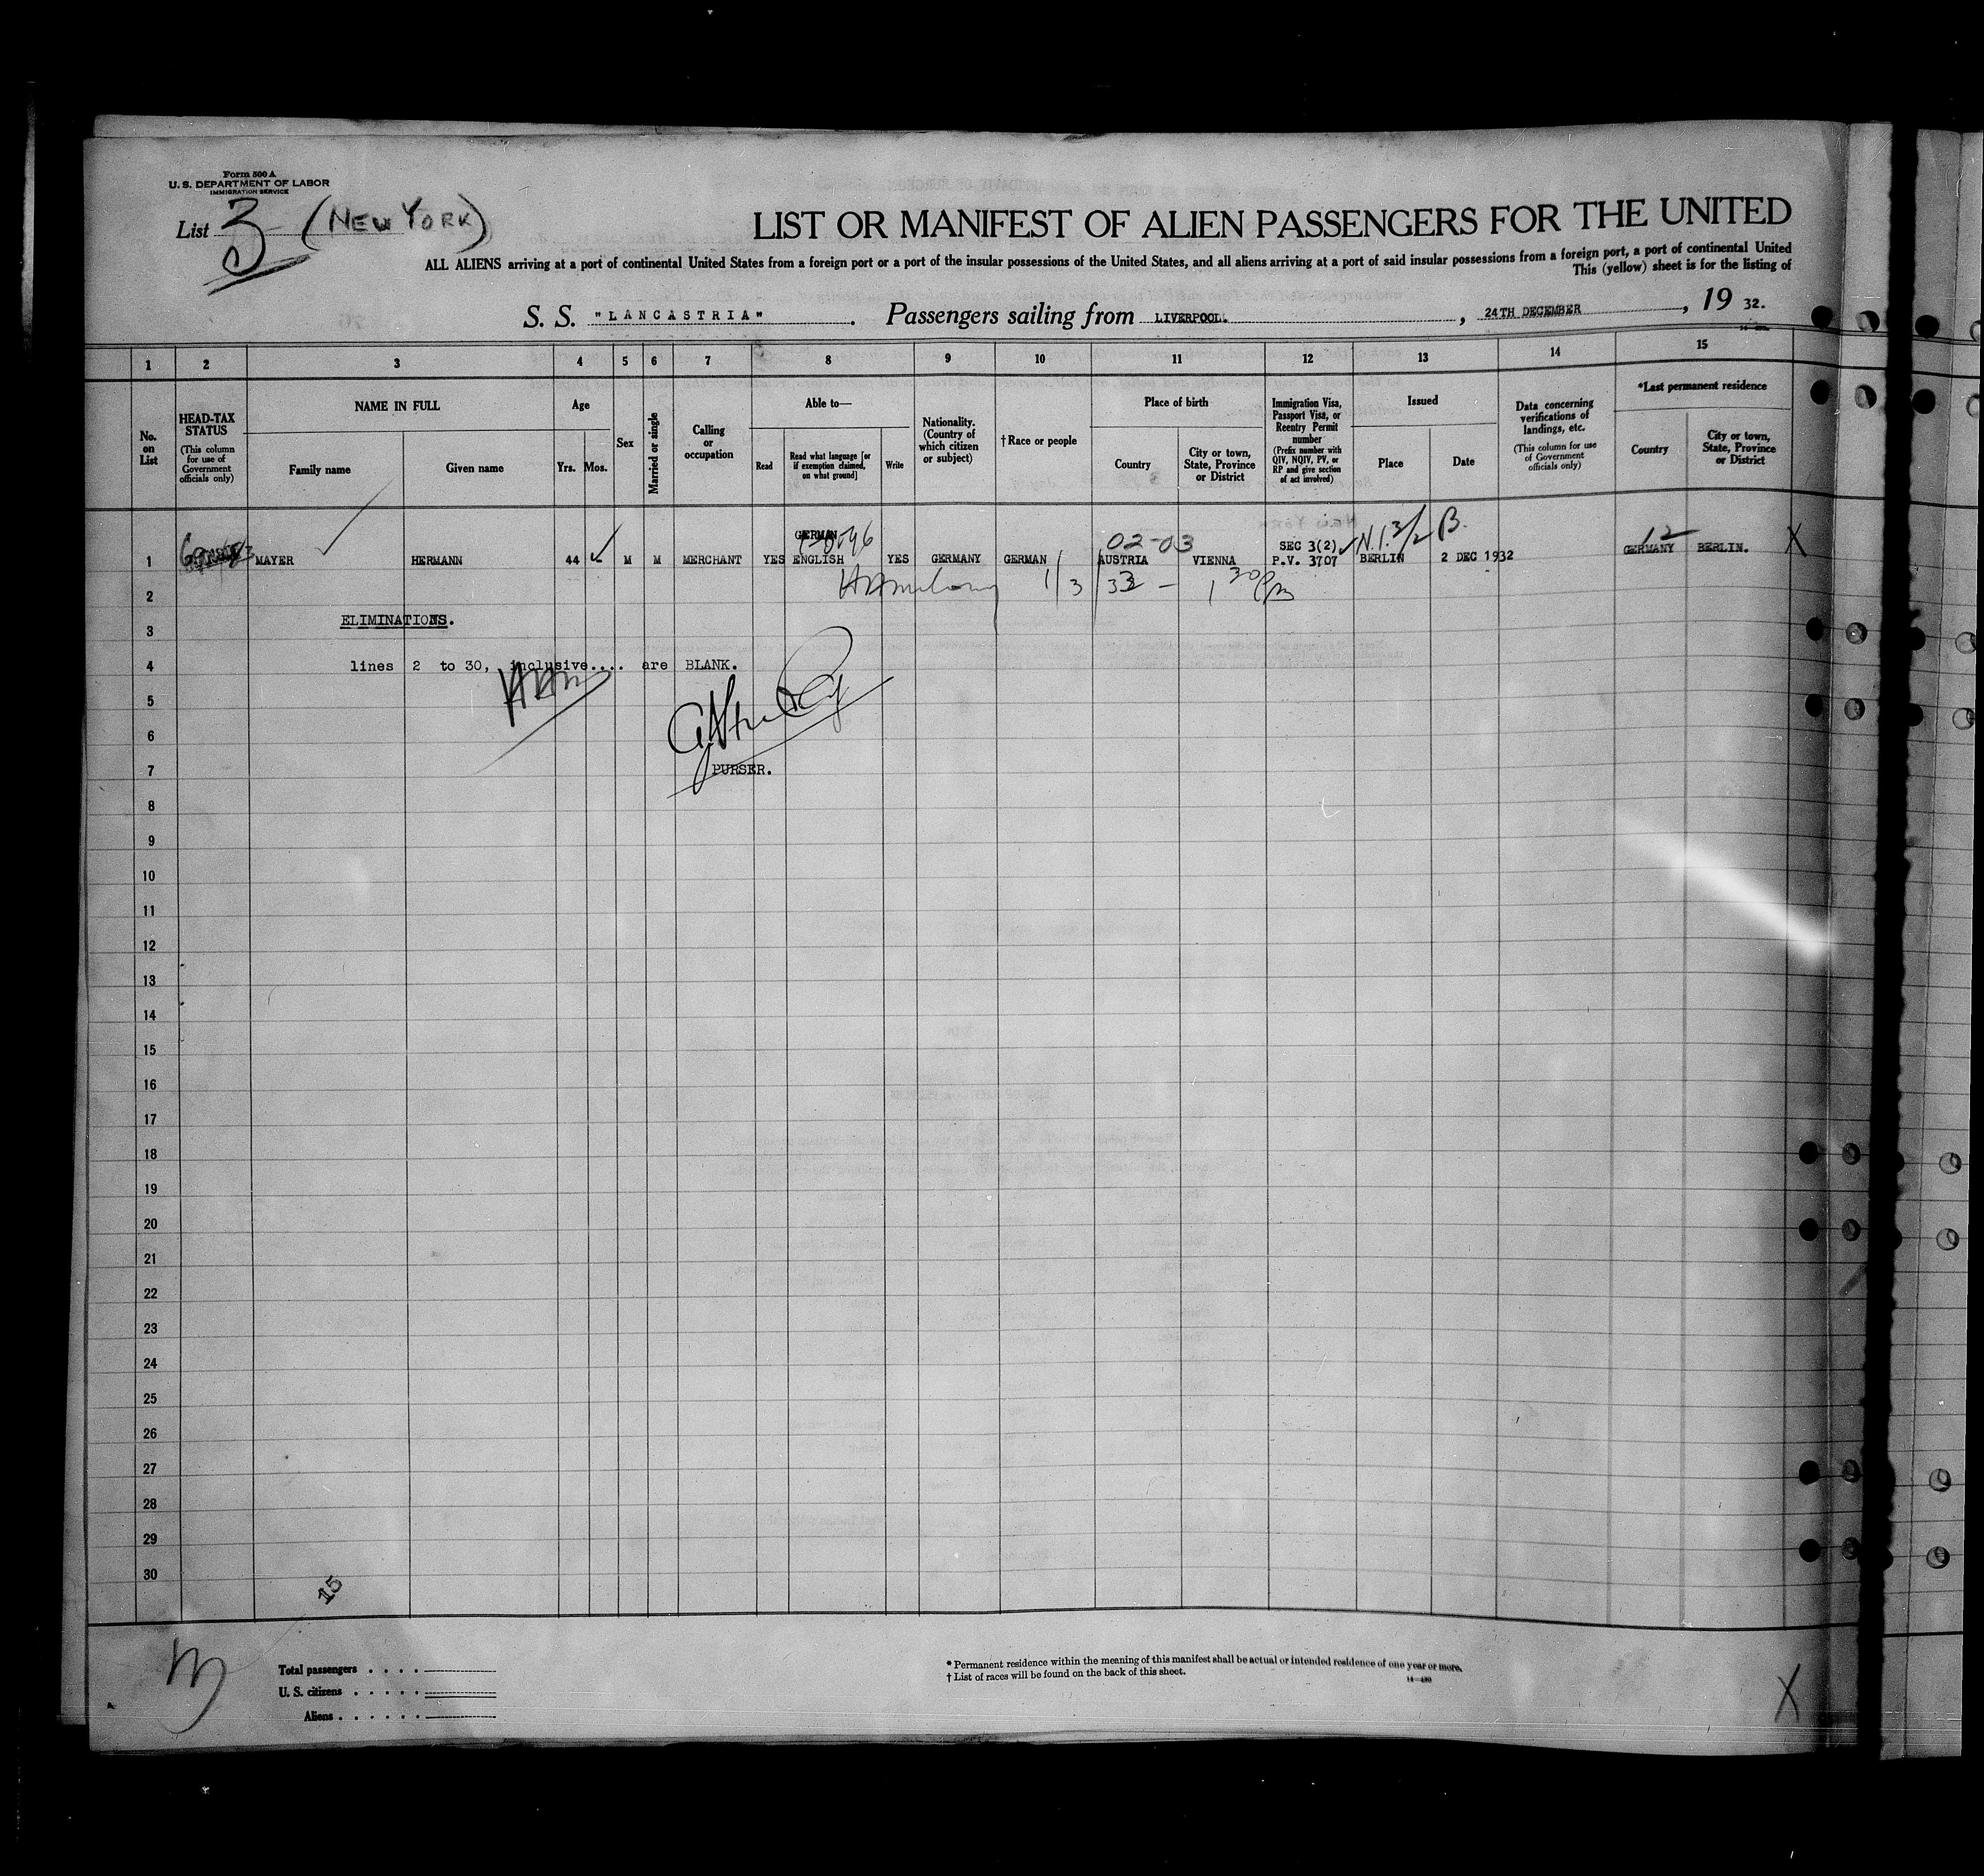 Form 500 A
U. S. DEPARTMENT OF LABOR
IMMIGRATION SERVICE
List 3 (NEW YORK)
LIST OR MANIFEST OF ALIEN PASSENGERS FOR THE UNITED
ALL ALIENS arriving at a port of continental United States from a foreign port or a port of the insular possessions of the United States, and all aliens arriving at a port of said insular possessions from a foreign port, a port of continental United
This (yellow) sheet is for the listing of
S. S. "LANCASTRIA" . Passengers sailing from LIVERPOOL. , 24TH DECEMBER , 19 32.
1 2 3 4 5 6 7 8 9 10 11 12 13 14 15
No. on List
HEAD-TAX STATUS
(This column for use of Government officials only)
NAME IN FULL
Family name Given name
Age
Yrs. Mos.
Sex
Married or single
Calling or occupation
Able to—
Read
Read what language [or if exemption claimed, on what ground]
Write
Nationality. (Country of which citizen or subject)
† Race or people
Place of birth
Country
City or town, State, Province or District
Immigration Visa, Passport Visa, or Reentry Permit number
(Prefix number with QIV, NQIV, PV, or RP and give section of act involved)
Issued
Place Date
Data concerning verifications of landings, etc.
(This column for use of Government officials only)
*Last permanent residence
Country
City or town, State, Province or District
GERMAN 02-03 SEC 3(2) N.I. 3/2 B. 12 X
1 MAYER HERMANN 44 M M MERCHANT YES ENGLISH YES GERMANY GERMAN AUSTRIA VIENNA P.V. 3707 BERLIN 2 DEC 1932 GERMANY BERLIN.
1/3/33 — 1 30 Pm
2
ELIMINATIONS.
3
4 lines 2 to 30, inclusive.... are BLANK.
5
6
7 PURSER.
8
9
10
11
12
13
14
15
16
17
18
19
20
21
22
23
24
25
26
27
28
29
30
15
Total passengers
U. S. citizens
Aliens
* Permanent residence within the meaning of this manifest shall be actual or intended residence of one year or more.
† List of races will be found on the back of this sheet.
X